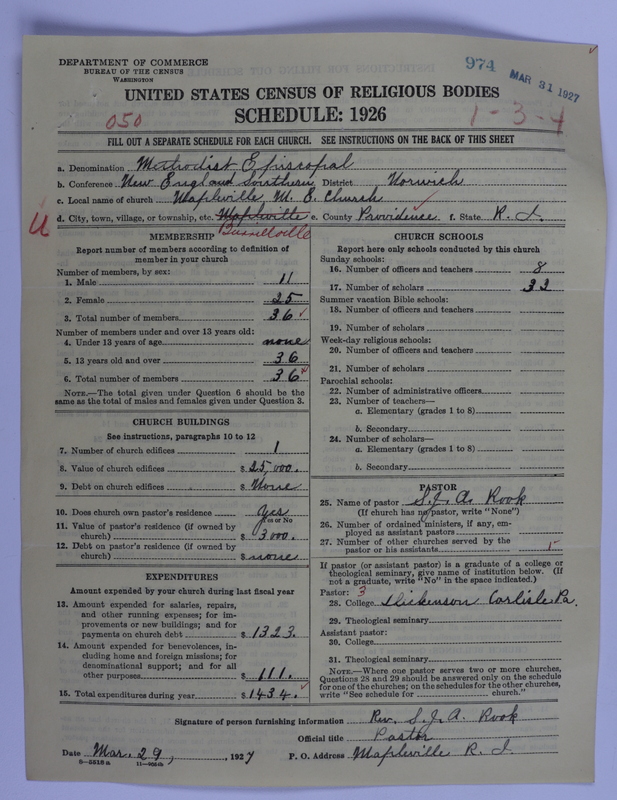 DEPARTMENT OF COMMERCE
BUREAU OF THE CENSUS
WASHINGTON
974
MAR 31 1927
UNITED STATES CENSUS OF RELIGIOUS BODIES
SCHEDULE: 1926
050
1-3-4
FILL OUT A SEPARATE SCHEDULE FOR EACH CHURCH. SEE INSTRUCTIONS ON THE BACK OF THIS SHEET
a. Denomination Methodist Episcopal
b. Conference New England Southern District Norwich
c. Local name of church Mapleville M. E. Church
d. City, town, village, or township, etc. Mapleville e. County Providence f. State R. I.
Burrillville
MEMBERSHIP
Report number of members according to definition of
member in your church
Number of members, by sex:
1. Male 11
2. Female 25
3. Total number of members 36
Number of members under and over 13 years old:
4. Under 13 years of age none
5. 13 years old and over 36
6. Total number of members 36
NOTE.—The total given under Question 6 should be
same as the total of males and females given under Question 3.
CHURCH BUILDINGS
See instructions, paragraphs 10 to 12
7. Number of church edifices 1
8. Value of church edifices $25,000.
9. Debt on church edifices $None
10. Does church own pastor's residence yes
Yes or No
11. Value of pastor's residence (if owned by
church) $3000.
12. Debt on pastor's residence (if owned by
church) $none
EXPENDITURES
Amount expended by your church during last fiscal year
13. Amount expended for salaries, repairs,
and other running expenses; for im-
provements or new buildings; and for
payments on church debt $1323.
14. Amount expended for benevolences, in-
cluding home and foreign missions; for
denominational support; and for all
other purposes $111.
15. Total expenditures during year $1434.
CHURCH SCHOOLS
Report here only schools conducted by this church
Sunday schools:
16. Number of officers and teachers 8
17. Number of scholars 33
Summer vacation Bible schools:
18. Number of officers and teachers
19. Number of scholars
Week-day religious schools:
20. Number of officers and teachers
21. Number of scholars
Parochial schools:
22. Number of administrative officers
23. Number of teachers—
a. Elementary (grades 1 to 8)
b. Secondary
24. Number of scholars—
a. Elementary (grades 1 to 8)
b. Secondary
PASTOR
25. Name of pastor S. J. A. Rook
(If church has no pastor, write "None")
26. Number of ordained ministers, if any, em-
ployed as assistant pastors
27. Number of other churches served by the
pastor or his assistants 1
If pastor (or assistant pastor) is a graduate of a college or
theological seminary, give name of institution below. (If
not a graduate, write "No" in the space indicated.)
Pastor: 3
28. College Dickenson Carlisle Pa.
29. Theological seminary
Assistant pastor:
30. College
31. Theological seminary
NOTE.—Where one pastor serves two or more churches,
Questions 28 and 29 should be answered only on the schedule
for one of the churches; on the schedules for the other churches,
write "See schedule for church."
Signature of person furnishing information Rev. S. J. A. Rook
Official title Pastor
Date Mar. 29, 1927 P. O. Address Mapleville R. I.
8-5518a